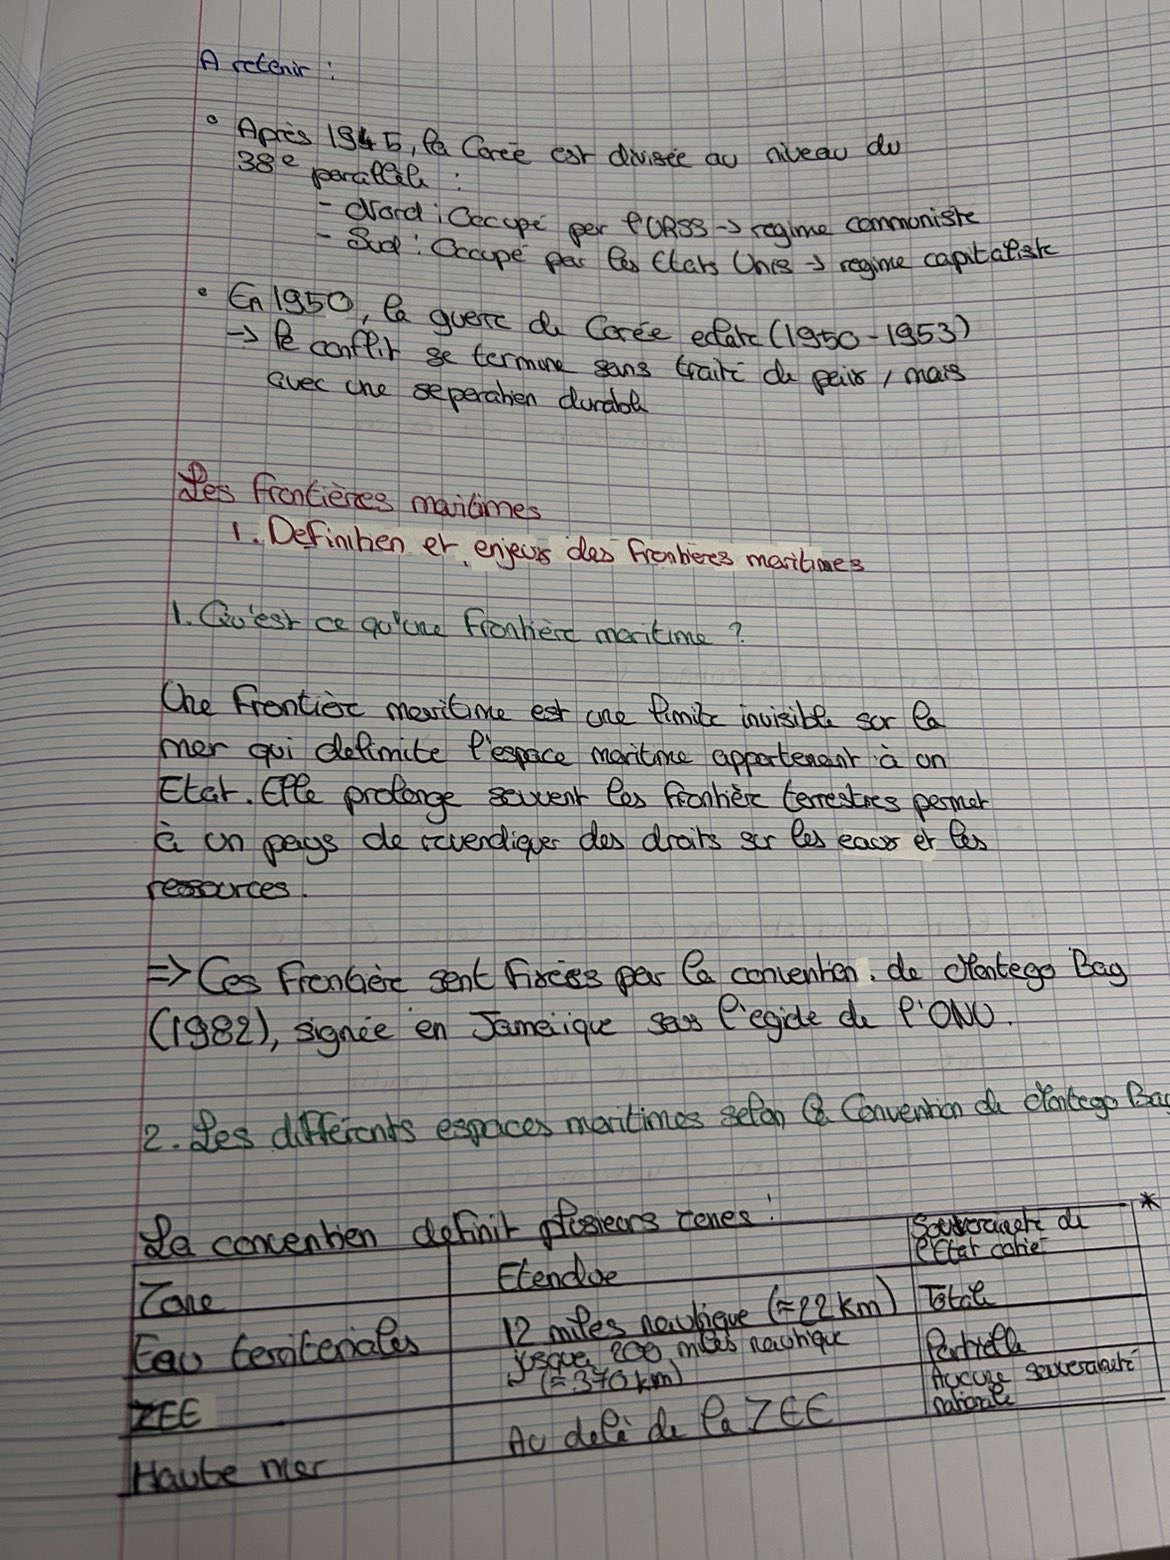 A retenir :
• Après 1945, la Corée est divisée au niveau du
38e parallèle :
- Nord : Occupé par l'URSS → regime communiste
- Sud : Occupé par les Etats Unis → regime capitaliste
• En 1950, la guerre de Corée eclate (1950-1953)
→ le conflit se termine sans traité de paix, mais
avec une separation durable
Les frontières maritimes
1. Definition et enjeux des frontières maritimes
1. Qu'est ce qu'une frontière maritime ?
Une frontière maritime est une limite invisible sur la
mer qui delimite l'espace maritime appartenant à un
Etat. Elle prolonge souvent les frontière terrestres permet
à un pays de revendiquer des droits sur les eaux et les
ressources.
=> Ces frontière sont fixées par la convention de Montego Bay
(1982), signée en Jamaïque sous l'egide de l'ONU.
2. Les différents espaces maritimes selon la Convention de Montego Bay
La convention definit plusieurs zones :
Zone | Etendue | Souveraineté de l'Etat cotier *
Eau territoriales | 12 miles nautique (≈22 km) | Totale
ZEE | jusque 200 miles nautique (≈370 km) | Partielle
Haute mer | Au delà de la ZEE | Aucune souveraineté nationale